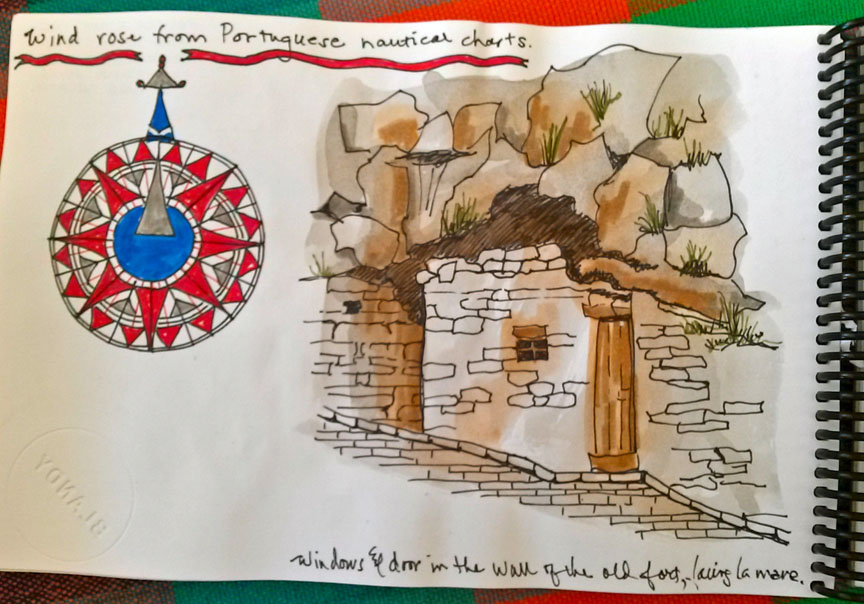 Wind rose from Portuguese nautical charts.
Windows & door in the wall of the old fort, facing la mare.